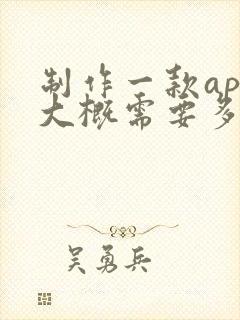 制作一款ap
大概需要多
吴勇兵